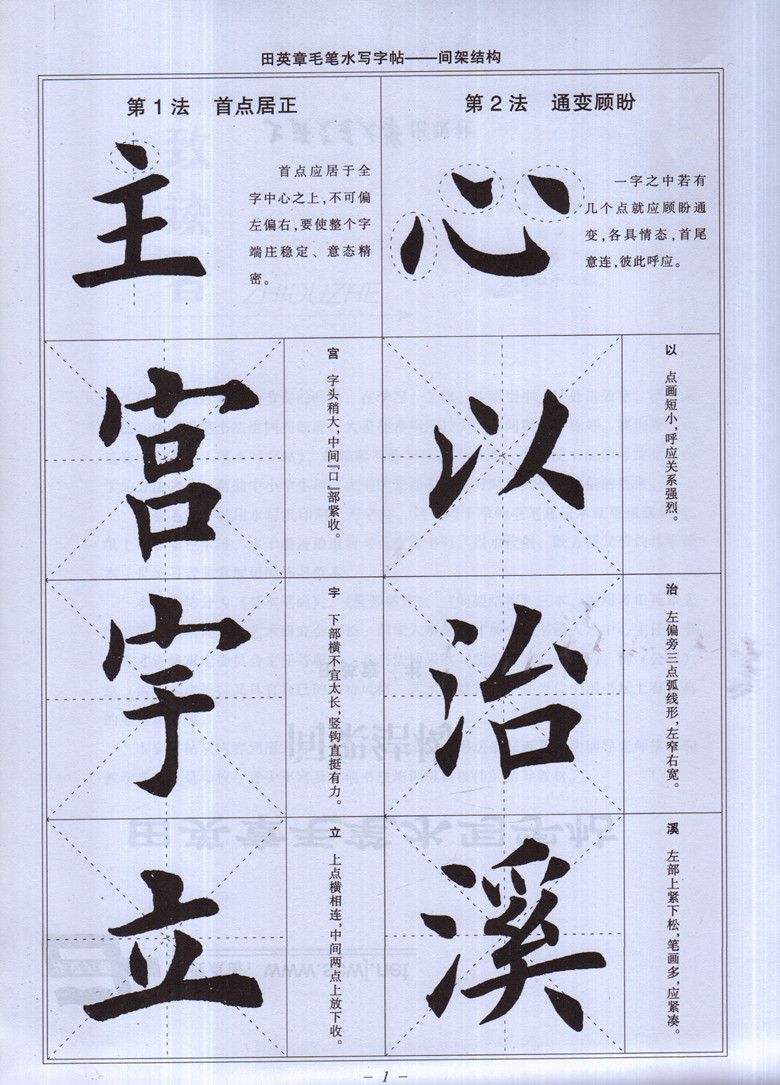 田英章毛笔水写字帖——间架结构
第1法 首点居正
主
首点应居于全
字中心之上,不可偏
左偏右,要使整个字
端庄稳定、意态精
密。
第2法 通变顾盼
心
一字之中若有
几个点就应顾盼通
变,各具情态,首尾
意连,彼此呼应。
宫
宫 字头稍大,中间『口』部紧收。
以
以 点画短小,呼应关系强烈。
宇
宇 下部横不宜太长,竖钩直挺有力。
治
治 左偏旁三点弧线形,左窄右宽。
立
立 上点横相连,中间两点上放下收。
溪
溪 左部上紧下松,笔画多,应紧凑。
– 1 –